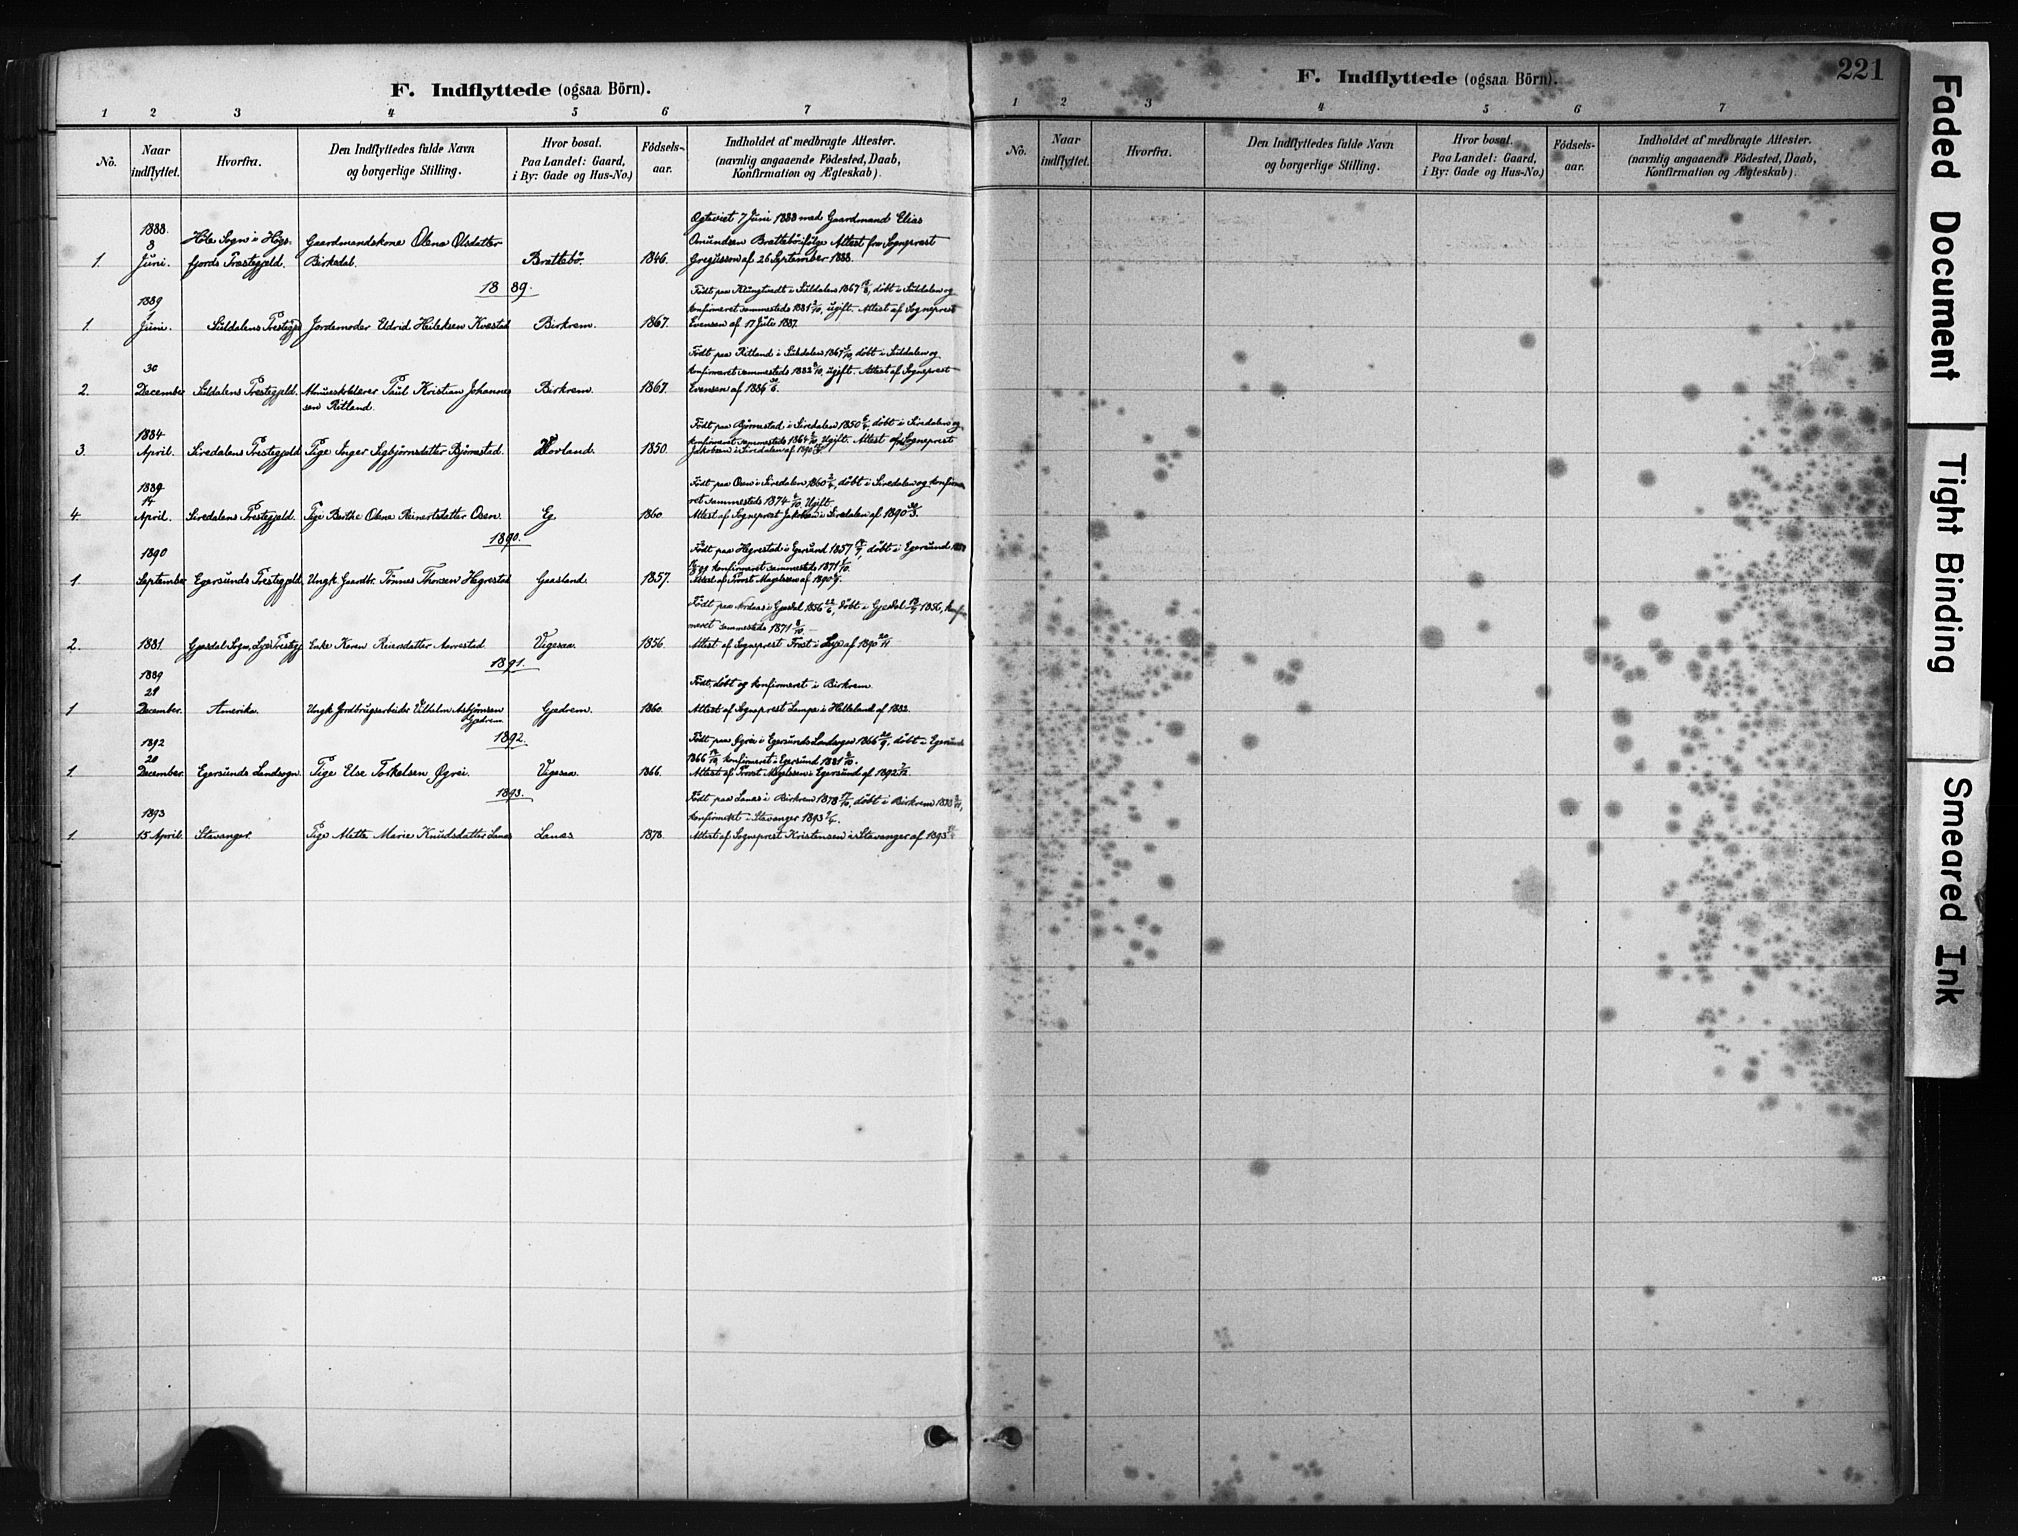 F. Indflyttede (ogsaa Börn).
1 2 3 4 5 6 7
No.
Naar indflyttet.
Hvorfra.
Den Indflyttedes fulde Navn og borgerlige Stilling.
Hvor bosat. Paa Landet: Gaard, i By: Gade og Hus-No.)
Födsels-aar.
Indholdet af medbragte Attester. (navnlig angaaende Födested, Daab, Konfirmation og Ægteskab).
1888.
8
1. Juni. Höle Sogn i Högs-
fjords Præstegjeld.
Gaardmandskone Olena Olsdatter
Birkedal.
Brattebö.
1846.
Egteviet 7 Juni 1888 med Gaardmand Elias
Omundsen Brattebö ifölge Attest fra Sogneprest
Gregussen af 26 September 1888.
1889.
1889
1. Juni. Suldalens Prestegjeld Jordemoder Eldrid Heileksen Kvæstad Birkrem. 1867.
i Suldalen 1867, döbt i Suldalen og
konfirmeret sammesteds 1881, ugift. Attest af Sogneprest
Evensen af 17 Juli 1887.
30
2. December Suldalens Prestegjeld. Almueskolelærer Paul Kristian Johanne-
sen Ritland.
Birkrem. 1867.
Födt paa Ritland i Suldalen 1867, döbt i Suldalen og
konfirmeret sammesteds 1882, ugift. Attest af Sogneprest
Evensen af 1886
1884
3. April. Siredalens Prestegjeld Pige Inger Sigbjörnsdatter Björnestad. Hovland. 1850.
Födt paa Björnestad i Siredalen 1850, döbt i Siredalen og
konfirmeret sammesteds 1864. Ugift. Attest af Sogneprest
Jakobsen i Siredalen af 1890
1889
14
4. April. Siredalens Prestegjeld. Pige Berthe Olena Reinertsdatter Osen. Eg. 1860.
Födt paa Osen i Siredalen 1860, döbt i Siredalen og konfirme-
ret sammesteds 1874. Ugift.
Attest af Sogneprest Jakobsen i Siredalen af 1890
1890.
1890
1. September Egersunds Prestegjeld. Ungk. Gaardbr. Tönnes Thorsen Hegrestad Gaasland. 1857.
Födt paa Hegrestad i Egersund 1857, döbt i Egersund
og konfirmeret sammesteds 1871
Attest af Provst Magelssen af 1890
2. 1881. Gjesdal Sogn, Lye Prestegj. Enke Karen Reiersdatter Aarrestad. Vigesaa. 1856.
Födt paa i Gjesdal 1856, döbt i Gjesdal 1856, konfir-
meret sammesteds 1871
Attest af Sogneprest Frost i Lye af 1890
1891.
1889
29
1 December. Amerika. Ungk. Jordbrugsarbeider Vilhelm Asbjörnsen
Gjedrem.
Gjedrem. 1860.
Födt, döbt og konfirmeret i Birkrem.
Attest af Sogneprest Lampe i Helleland af 1882.
1892.
1892
20
1 December. Egersunds Landsogn. Pige Else Torkelsen Ögrei. Vigesaa. 1866.
Födt paa Ögrei i Egersunds Landsogn 1866, döbt i Egersund
1866, konfirmeret i Egersund 1881
Attest af Provst Magelssen i Egersund af 1892
1893.
1893
1. 15 April. Stavanger. Pige Mette Marie Knudsdatter Lanæs Lanæs 1878.
Födt paa Lanæs i Birkrem 1878, döbt i Birkrem 1878,
konfirmert i Stavanger 1893
Attest af Sogneprest Kristensen i Stavanger af 1893
F. Indflyttede (ogsaa Börn).
221
1 2 3 4 5 6 7
No.
Naar indflyttet.
Hvorfra.
Den Indflyttedes fulde Navn og borgerlige Stilling.
Hvor bosat. Paa Landet: Gaard, i By: Gade og Hus-No.)
Födsels-aar.
Indholdet af medbragte Attester. (navnlig angaaende Födested, Daab, Konfirmation og Ægteskab).
Faded Document
Tight Binding
Smeared Ink